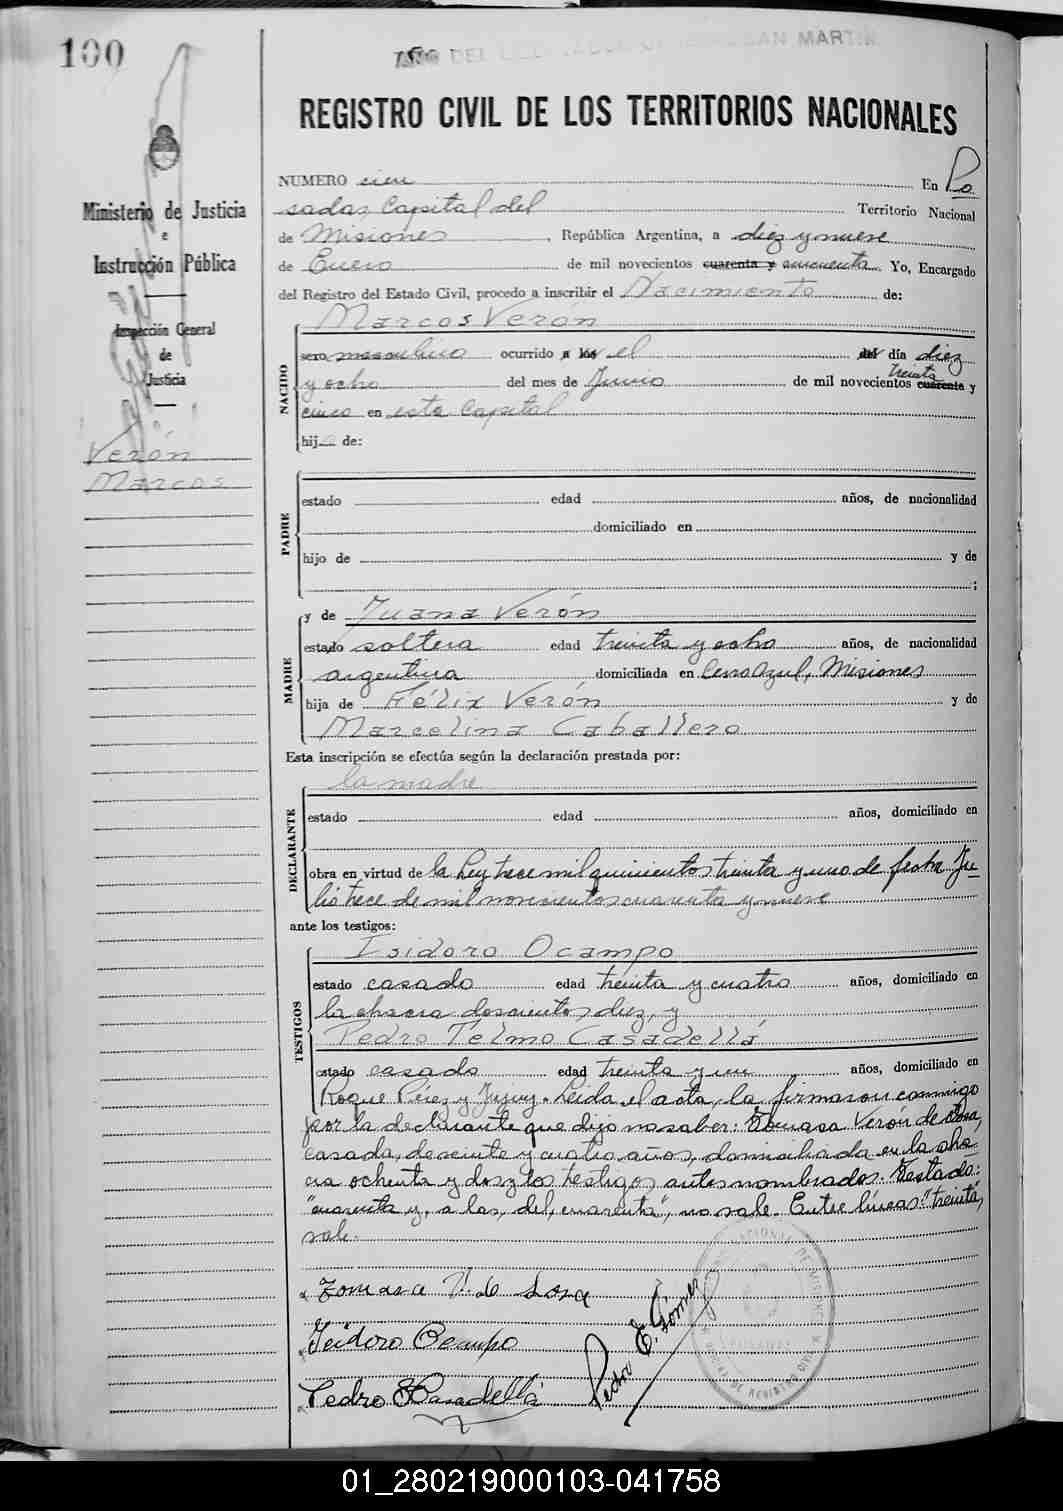 100
DEL LIBERTADOR GENERAL SAN MARTIN
REGISTRO CIVIL DE LOS TERRITORIOS NACIONALES
NUMERO cien En Po
sadas, Capital del Territorio Nacional
de Misiones, República Argentina, a diez y nueve
de Enero de mil novecientos cuarenta y cincuenta. Yo, Encargado
del Registro del Estado Civil, procedo a inscribir el Nacimiento de:
Ministerio de Justicia
e
Instrucción Pública
Inspección General
de
Justicia
Verón
Marcos
NACIDO
Marcos Verón
sexo masculino ocurrido a las el del día diez
treinta
y ocho del mes de Junio de mil novecientos cuarenta y
cinco en esta Capital
hij de:
PADRE
estado edad años, de nacionalidad
domiciliado en
hijo de y de
;
MADRE
y de Juana Verón
estado soltera edad treinta y ocho años, de nacionalidad
argentina domiciliada en Cerro Azul, Misiones
hija de Félix Verón y de
Marcelina Caballero
Esta inscripción se efectúa según la declaración prestada por:
DECLARANTE
la madre
estado edad años, domiciliado en
obra en virtud de la Ley trece mil quinientos treinta y uno de fecha Ju
lio trece de mil novecientos cuarenta y nueve
ante los testigos:
TESTIGOS
Isidoro Ocampo
estado casado edad treinta y cuatro años, domiciliado en
la chacra doscientos diez, y
Pedro Telmo Casadellá
estado casado edad treinta y un años, domiciliado en
Roque Pérez y Jujuy. Leida el acta, la firmaron conmigo
por la declarante que dijo no saber: Tomasa Verón de Sosa,
casada, de veinte y cuatro años, domiciliada en la cha
cra ochenta y dos y los testigos antes nombrados. Testado:
"cuarenta y, a las, del, cuarenta", no vale. Entre líneas: "treinta",
vale.
Tomasa V. de Sosa
Isidoro Ocampo
Pedro E. Gómez
Pedro T Casadellá
01_280219000103-041758